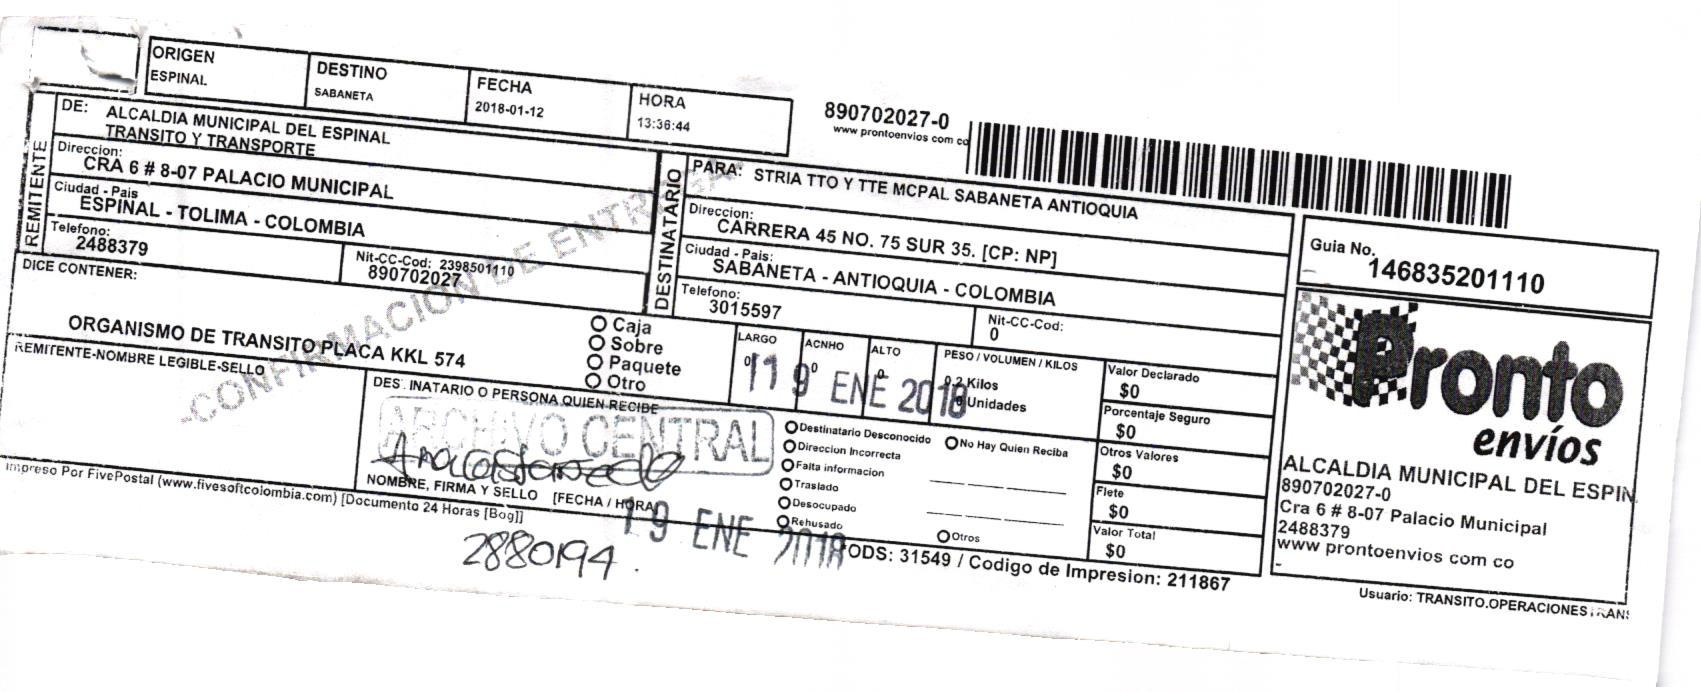 ORIGEN
ESPINAL
DESTINO
SABANETA
FECHA
2018-01-12
HORA
13:36:44
890702027-0
www prontoenvios com co
REMITENTE
DE: ALCALDIA MUNICIPAL DEL ESPINAL
TRANSITO Y TRANSPORTE
Direccion:
CRA 6 # 8-07 PALACIO MUNICIPAL
Ciudad - Pais
ESPINAL - TOLIMA - COLOMBIA
Telefono:
2488379
Nit-CC-Cod: 2398501110
890702027
DESTINATARIO
PARA: STRIA TTO Y TTE MCPAL SABANETA ANTIOQUIA
Direccion:
CARRERA 45 NO. 75 SUR 35. [CP: NP]
Ciudad - Pais:
SABANETA - ANTIOQUIA - COLOMBIA
Telefono:
3015597
Nit-CC-Cod:
0
Guia No.
146835201110
CONFIRMACION DE ENTREGA
DICE CONTENER:
ORGANISMO DE TRANSITO PLACA KKL 574
Caja
Sobre
Paquete
Otro
LARGO
0
ACNHO
0
ALTO
0
PESO / VOLUMEN / KILOS
0.2 Kilos
Unidades
19 ENE 2018
Valor Declarado
$0
Porcentaje Seguro
$0
Otros Valores
$0
Flete
$0
Valor Total
$0
REMITENTE-NOMBRE LEGIBLE-SELLO
DES. INATARIO O PERSONA QUIEN RECIBE
ARCHIVO CENTRAL
NOMBRE, FIRMA Y SELLO [FECHA / HORA]
19 ENE 2018
2880194.
Destinatario Desconocido
No Hay Quien Reciba
Direccion Incorrecta
Falta informacion
Traslado
Desocupado
Rehusado
Otros
Impreso Por FivePostal (www.fivesoftcolombia.com) [Documento 24 Horas [Bog]]
ODS: 31549 / Codigo de Impresion: 211867
Pronto
envíos
ALCALDIA MUNICIPAL DEL ESPIN
890702027-0
Cra 6 # 8-07 Palacio Municipal
2488379
www prontoenvios com co
Usuario: TRANSITO.OPERACIONES